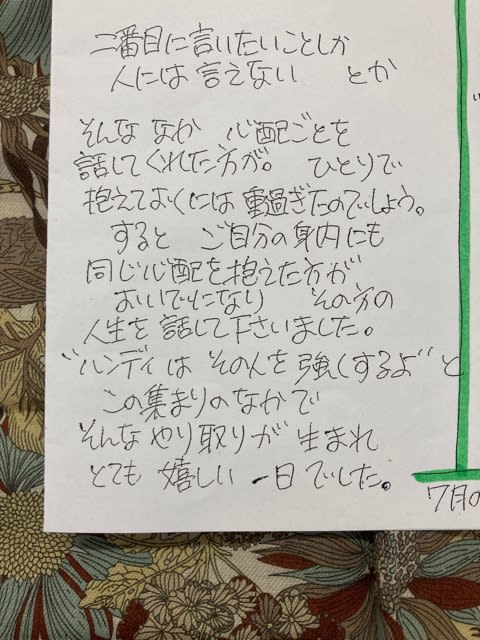 二番目に言いたいことしか
人には言えない とか
そんな なか 心配ごとを
話してくれた方が。 ひとりで
抱えておくには 重過ぎたのでしょう。
すると ご自分の身内にも
同じ心配を抱えた方が
おいでになり その方の
人生を 話して下さいました。
"ハンディは その人を 強くするよ" と
この集まりのなかで
そんな やり取りが 生まれ
とても 嬉しい 一日でした。
7月の